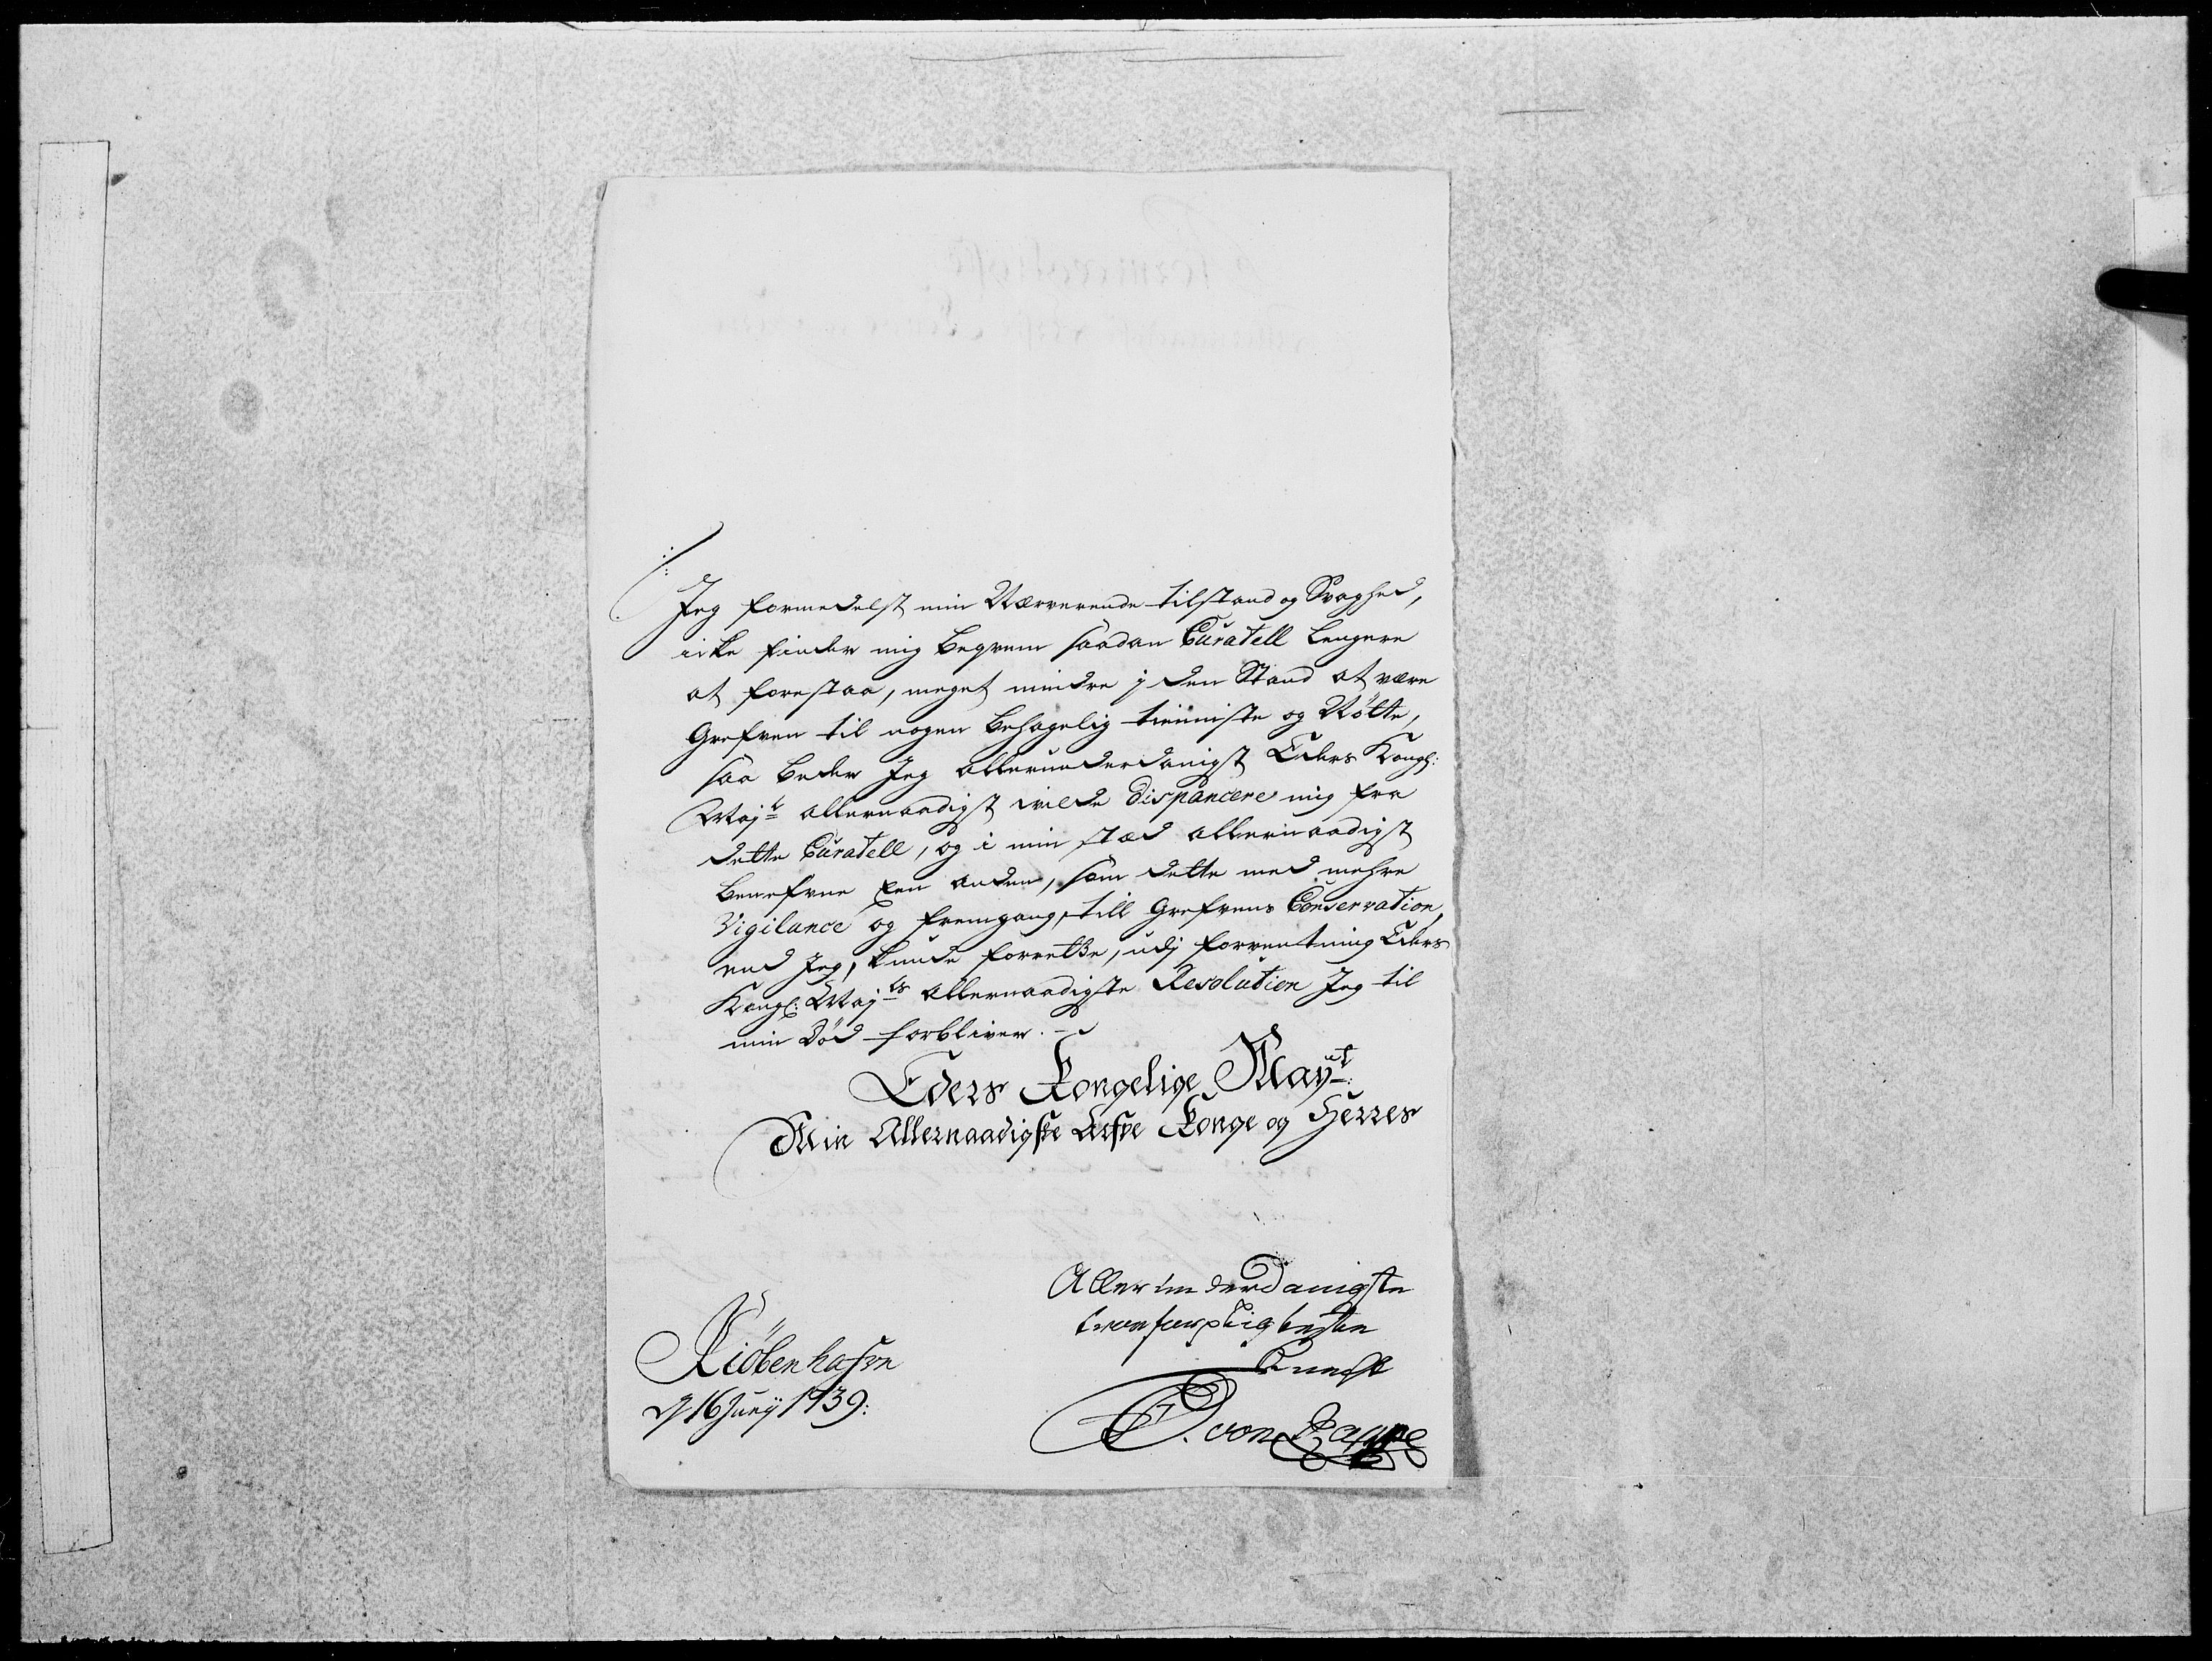 Jeg formedelst min Nærverende tilstand og Svaghed,
icke finder mig beqvem saadan Curatell lengere
at forestaa, meget mindre j den Stand at være
Grefven til nogen behagelig tienniste og Nötte,
saa beder Jeg allerunderdanigst Eders Kongl:
Majt allernaadigst wilde dispancere mig fra
dette Curatell, og i min stæd allernaadigst
benefvne Een anden, som dette med mehre
Vigilance og fremgang, till Grefvens Conservation,
end Jeg, kunde forrette, udj forventning Eders
Kongl: Majts allernaadigste Resolution Jeg til
min Död forbliver.
Eders Kongelige Mayt:
Min Allernaadigste Arfve Konge og Herres
Allerunderdanigste
troepligtigste
Knecht
Kiöbenhafvn
d 16 Junij 1739:
von Rappe